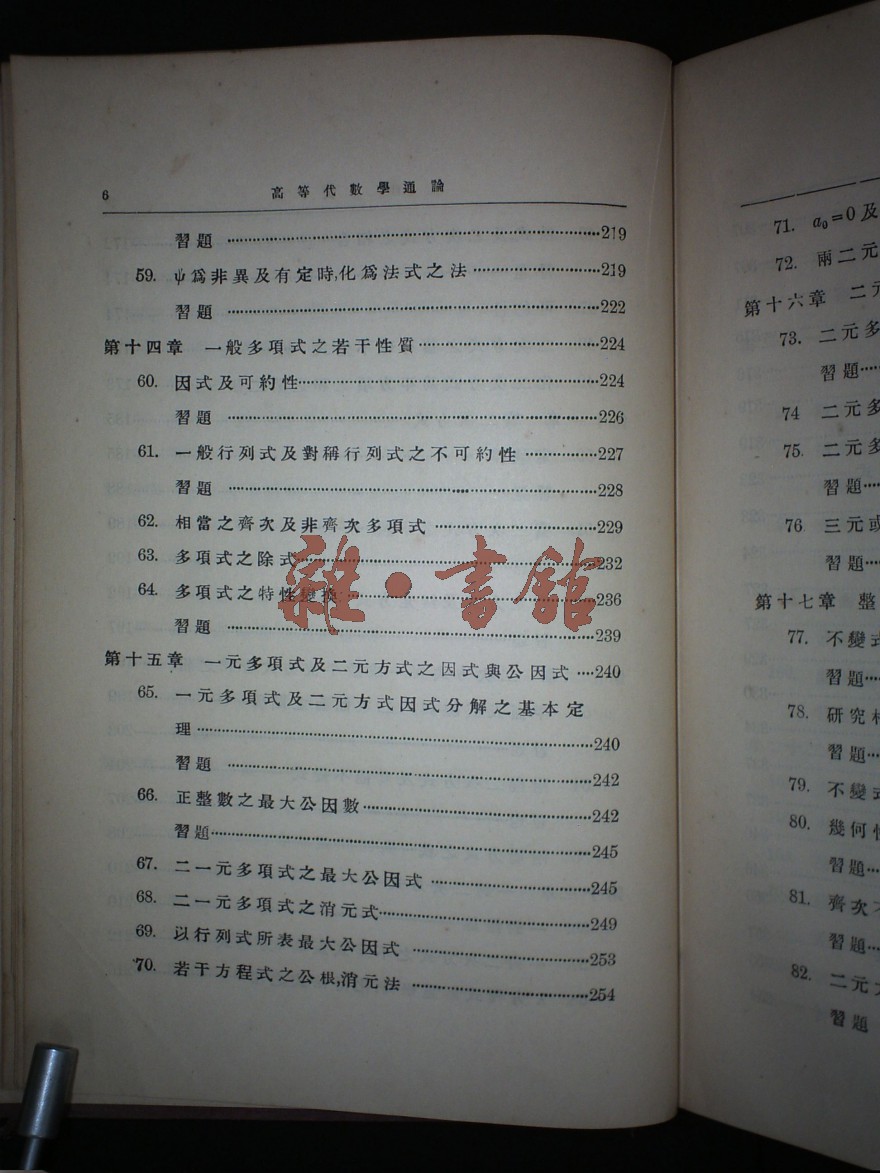 6 高等代數學通論
習題 ……219
59. ψ爲非異及有定時,化爲法式之法 ……219
習題 ……222
第十四章 一般多項式之若干性質 ……224
60. 因式及可約性 ……224
習題 ……226
61. 一般行列式及對稱行列式之不可約性 ……227
習題 ……228
62. 相當之齊次及非齊次多項式 ……229
63. 多項式之除式 ……232
64. 多項式之特性變換 ……236
習題 ……239
第十五章 一元多項式及二元方式之因式與公因式 ……240
65. 一元多項式及二元方式因式分解之基本定
理 ……240
習題 ……242
66. 正整數之最大公因數 ……242
習題 ……245
67. 二一元多項式之最大公因式 ……245
68. 二一元多項式之消元式 ……249
69. 以行列式所表最大公因式 ……253
70. 若干方程式之公根,消元法 ……254
雜·書館
71. a₀=0及
72. 兩二元
第十六章 二元
73. 二元多
習題……
74 二元多
75. 二元多
習題……
76 三元或
習題……
第十七章 整
77. 不變式
習題……
78. 研究
習題……
79. 不變式
80. 幾何性
習題……
81. 齊次不
習題……
82. 二元
習題